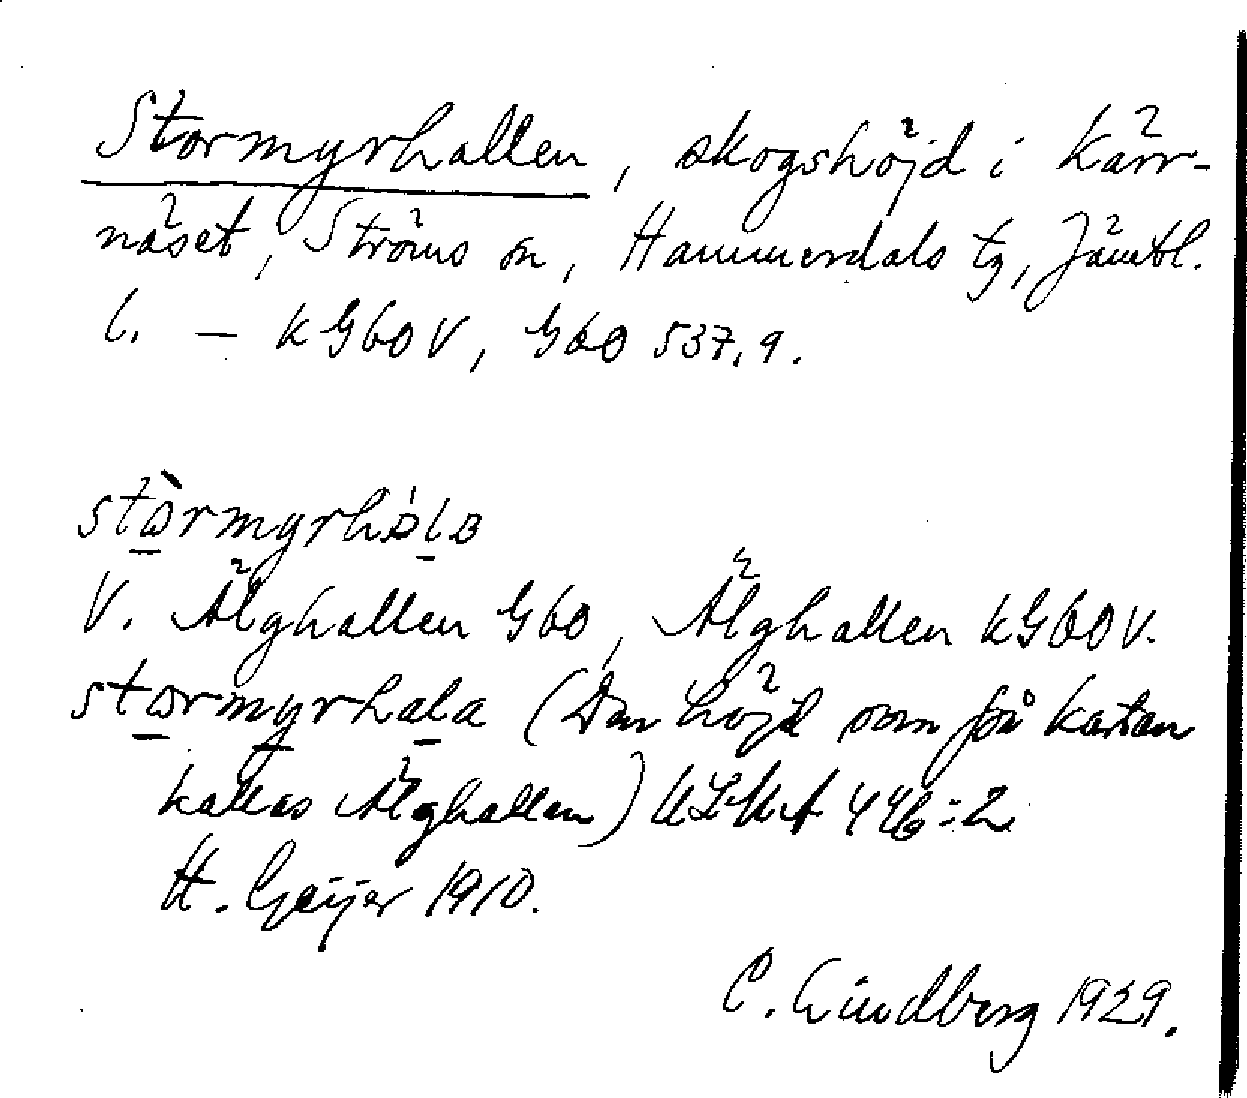 Stormyrhallen, skogshöjd i Kärr-
näset, Ströms sn, Hammerdals tg, Jämtl.
l. – kGbOV, GbO 537,9.
stòrmyrhálɒ
V. Älghallen GbO, Älghallen kGbOV.
stormyrhala (Den höjd som på kartan
kallas Älghallen) ULMA 446:2
H. Geijer 1910.
C. Lindberg 1929.